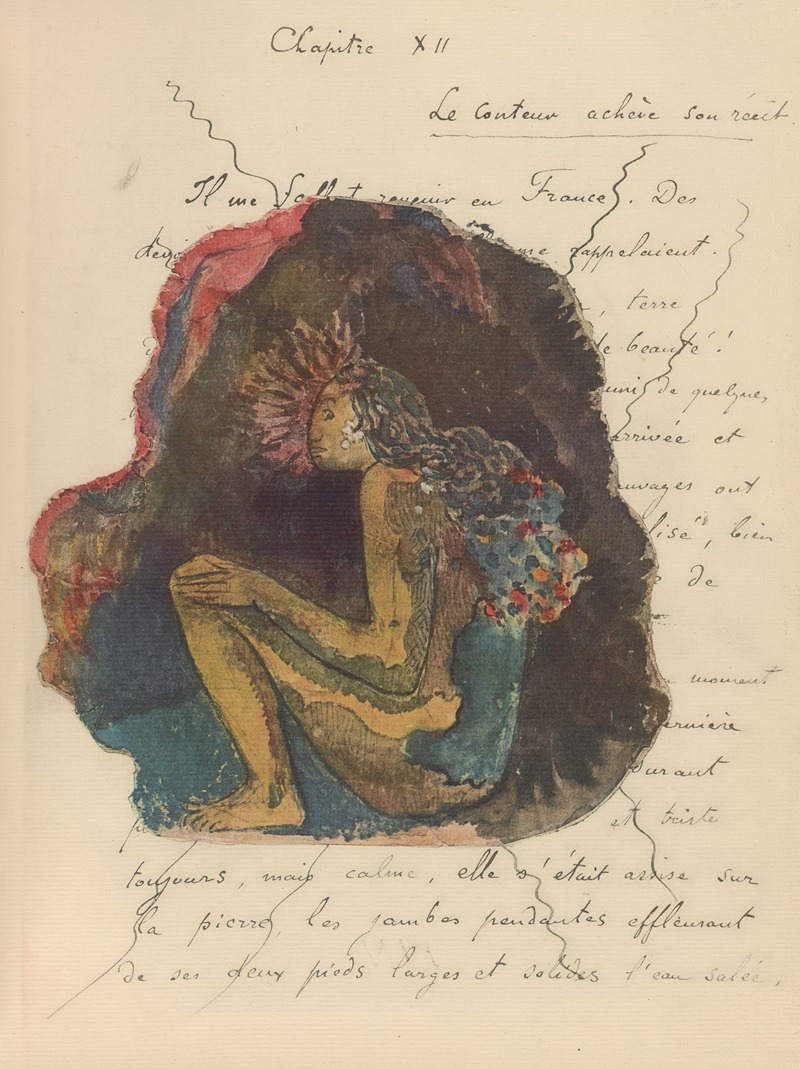 Chapitre XII
Le conteur achève son récit.
Il me fallut revenir en France. Des
me rappelaient.
, terre
de beauté !
de quelques
arrivée et
ont
, bien
de
moment
dernière
durant
et triste
toujours, mais calme, elle s'était assise sur
la pierre, les jambes pendantes effleurant
de ses deux pieds larges et solides l'eau salée,